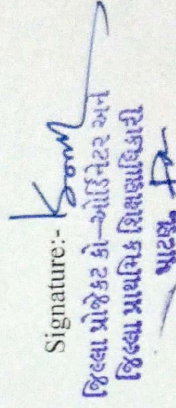 Signature:-
જીલ્લા પ્રોજેકટ કો-ઓર્ડીનેટર અને
જીલ્લા પ્રાથમિક શિક્ષણાધિકારી
પાટણ